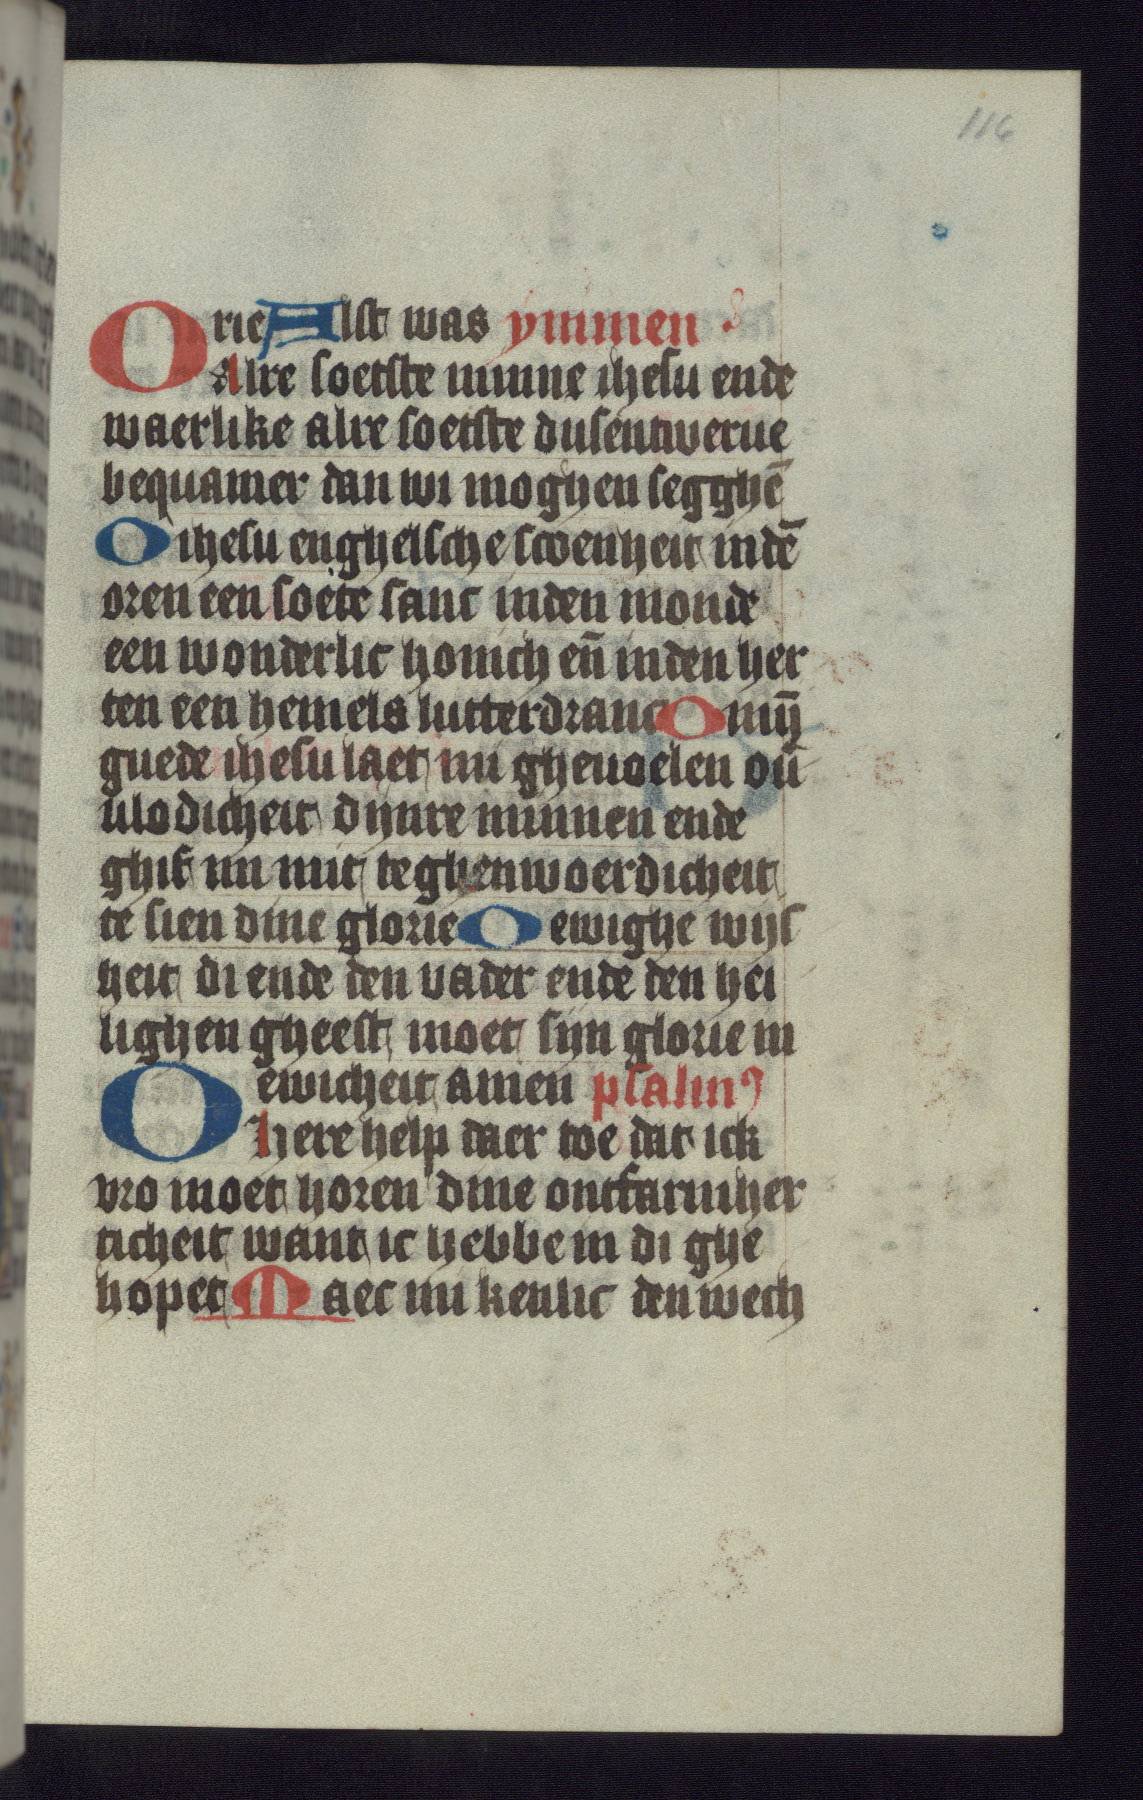 116
rie Alst was ymmen
O Alre soetste minne ihesu ende
waerlike alre soetste dusentwerue
bequamer dan wi moghen segghē
O ihesu enghelsche scoenheit indē
oren een soete sanc inden monde
een wonderlic honich eñ inden her
ten een hemels lutterdranc O mijn
guede ihesu laet mi gheuoelen ou̅
ulodicheit dijnre minnen ende
ghif mi mit teghenwoerdicheit
te sien dine glorie O ewighe wijs
heit di ende den vader ende den hei
lighen gheest moet sijn glorie in
ewicheit amen psalmꝰ
O here help daer toe dat ick
vro moet horen dine ontfarmher
ticheit want ic hebbe in di ghe
hopet Maec mi kenlic den wech